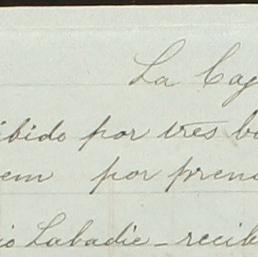 La Caj
ibido por tres bo
em por prend
io Labadie - recib